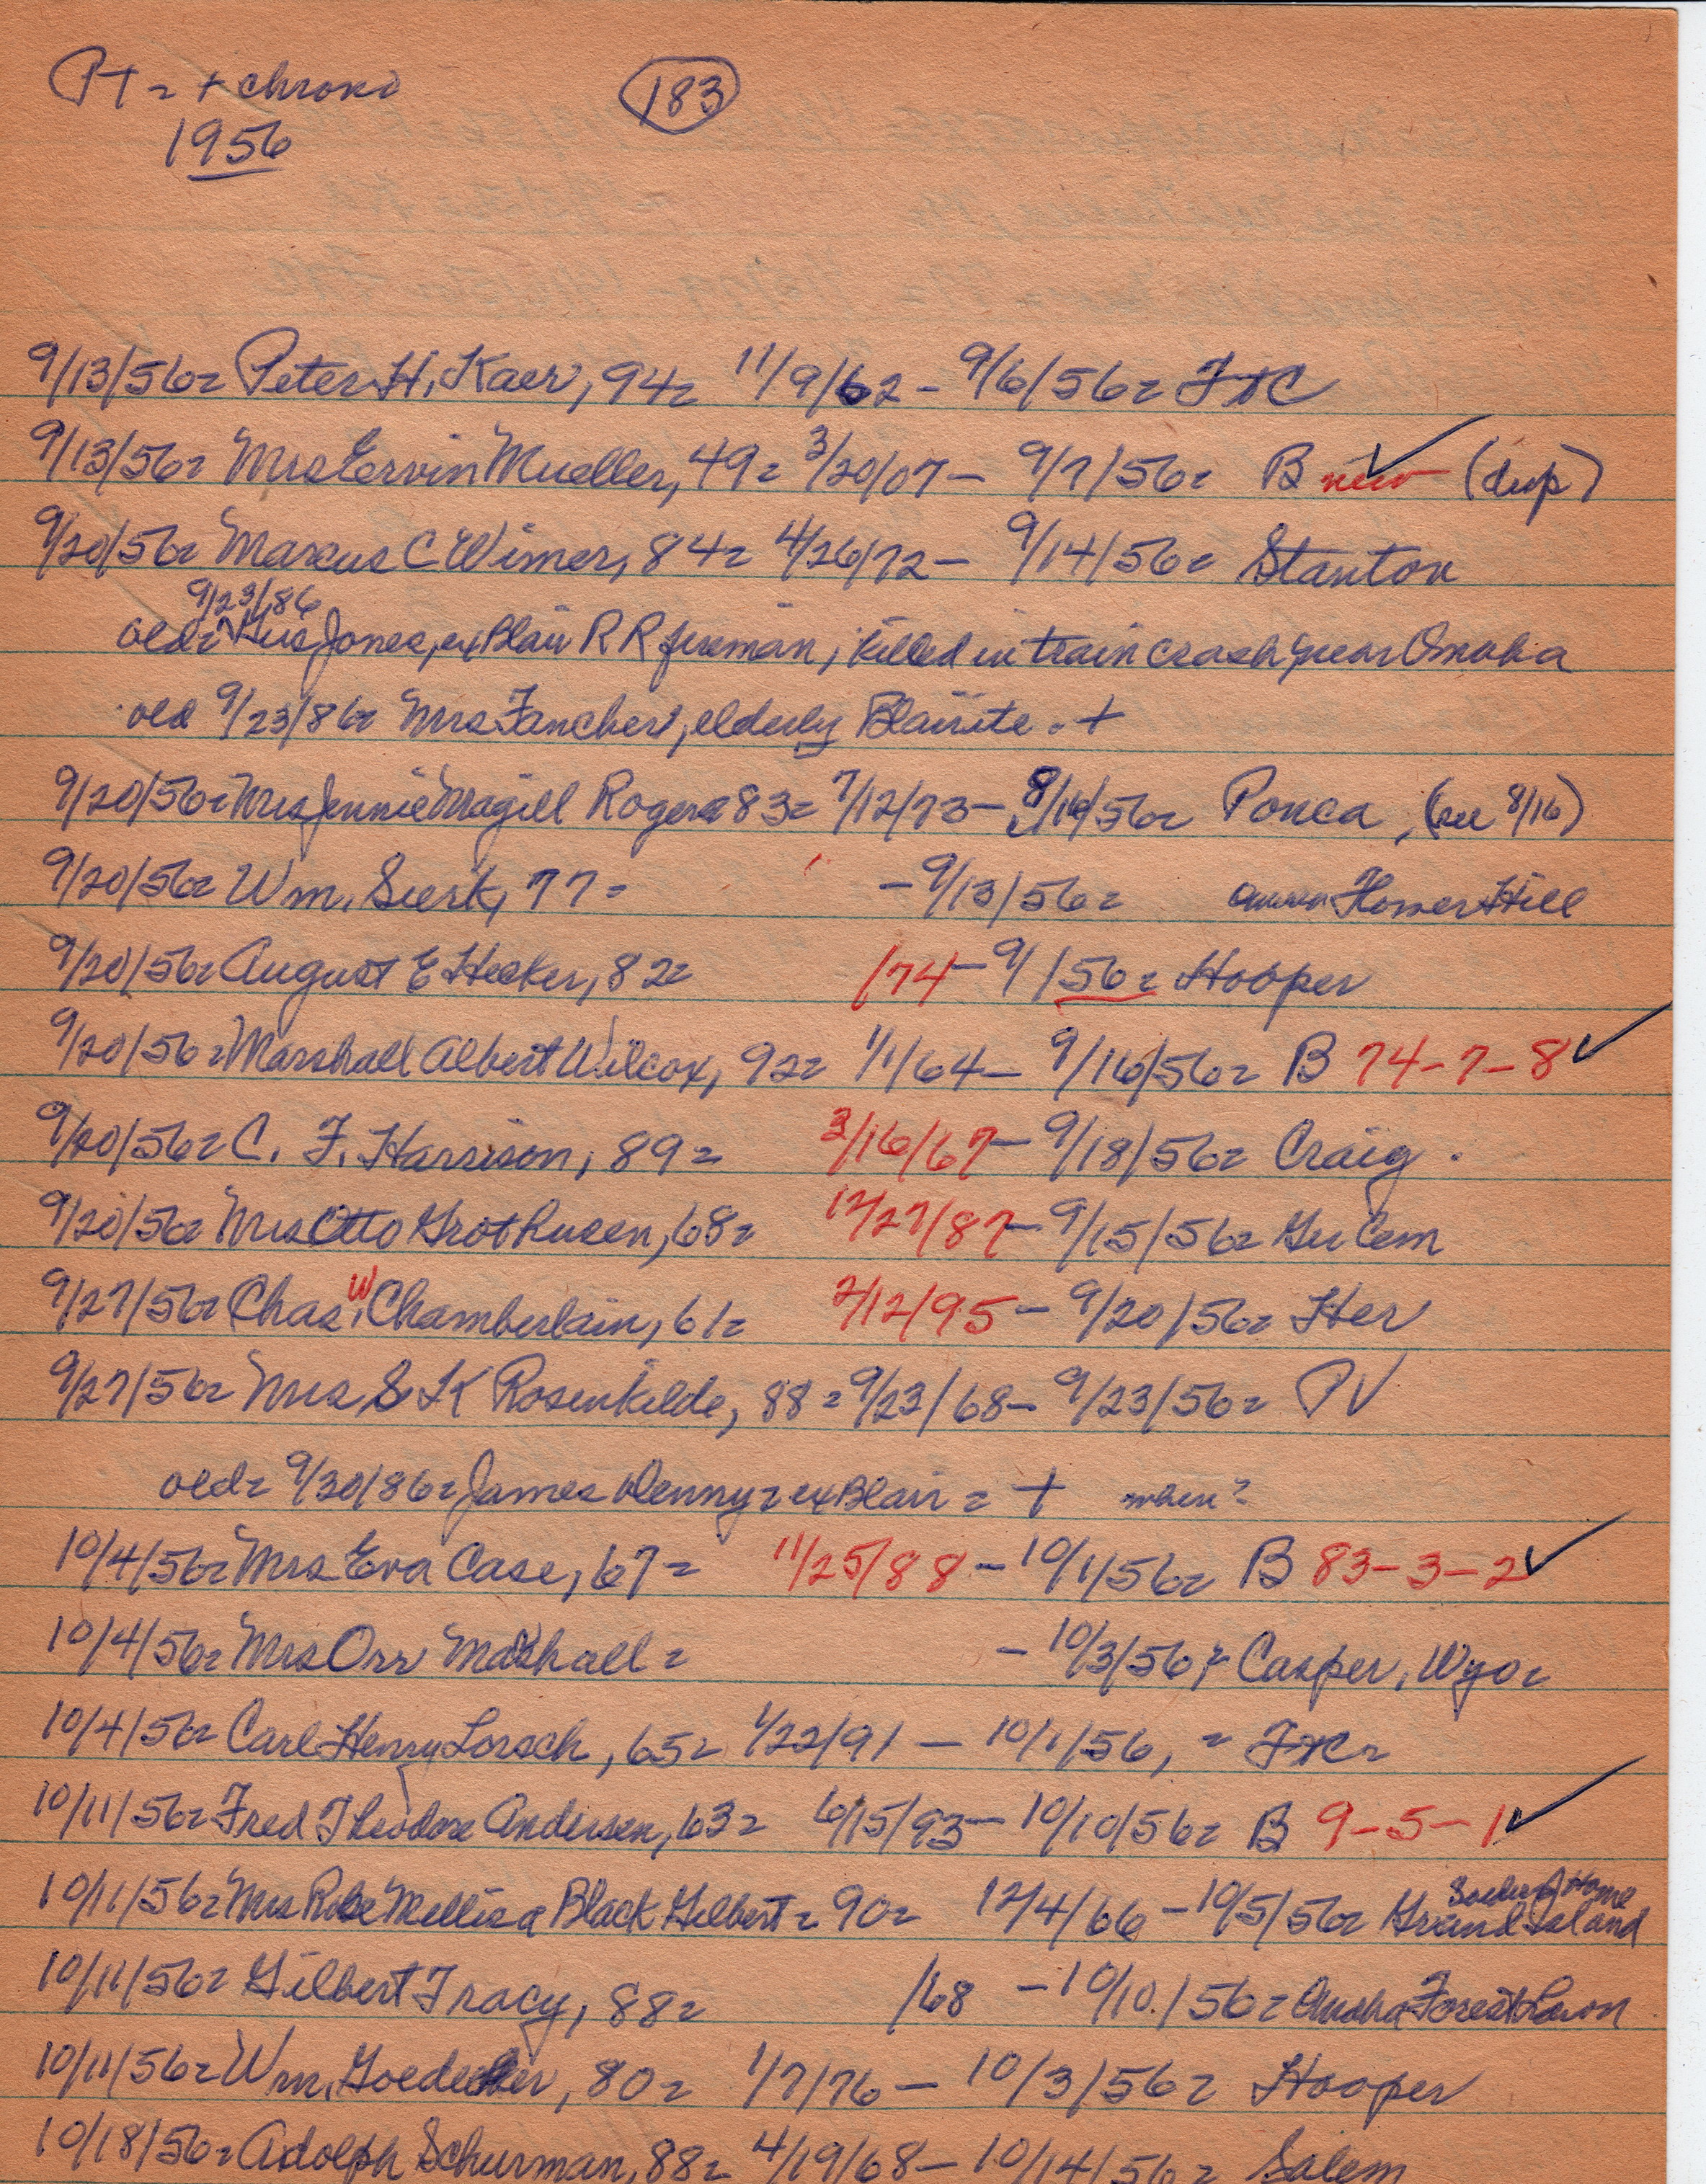 PT = + chrono
183
1956
9/13/56 = Peter H. Kaer, 94 = 11/9/62 - 9/6/56 = FtC
9/13/56 = Mrs Ervin Mueller, 49 = 3/20/07 - 9/7/56 = B new ✓ (dup)
9/20/56 = Marcus C Wimer, 84 = 4/26/72 - 9/14/56 = Stanton
9/23/86
old = ^ Gus Jones, ex Blair RR fireman, killed in train crash near Omaha
old 9/23/86 = Mrs Fancher, elderly Blairite. +
9/20/56 = Mrs Jennie Magill Rogers 83 = 7/12/73 - 8/14/56 = Ponca, (see 8/16)
9/20/56 = Wm. Sierk, 77 = - 9/13/56 = Flower Hill
9/20/56 = August E Hecker, 82 = /74 - 9/ /56 = Hooper
9/20/56 = Marshall Albert Wilcox, 92 = 1/1/64 - 9/16/56 = B 74-7-8 ✓
9/20/56 = C. F. Harrison, 89 = 3/16/67 - 9/18/56 = Craig.
9/20/56 = Mrs Otto Grothusen, 68 = 12/27/87 - 9/15/56 = Gr Cem
9/27/56 = Chas. W Chamberlain, 61 = 2/12/95 - 9/20/56 = Her
9/27/56 = Mrs S K Rosenkilde, 88 = 9/23/68 - 9/23/56 = PV
old = 9/30/86 = James Denny = ex Blair = + when?
10/4/56 = Mrs Eva Case, 67 = 11/25/88 - 10/1/56 = B 83-3-2 ✓
10/4/56 = Mrs Orr Marshall = - 10/3/56 = Casper, Wyo =
10/4/56 = Carl Henry Lorsch, 65 = 1/22/91 - 10/1/56, = FtC =
10/11/56 = Fred Theodore Andersen, 63 = 6/15/93 - 10/10/56 = B 9-5-1 ✓
10/11/56 = Mrs Rose Mellisa Black Gilbert = 90 = 12/4/66 - 10/5/56 = Grand Island Home
10/11/56 = Gilbert Tracy, 88 = /68 - 10/10./56 = Omaha Forest Lawn
10/11/56 = Wm. Goedeker, 80 = 1/7/76 - 10/3/56 = Hooper
10/18/56 = Adolph Schurman, 88 = 4/19/68 - 10/14/56 = Salem